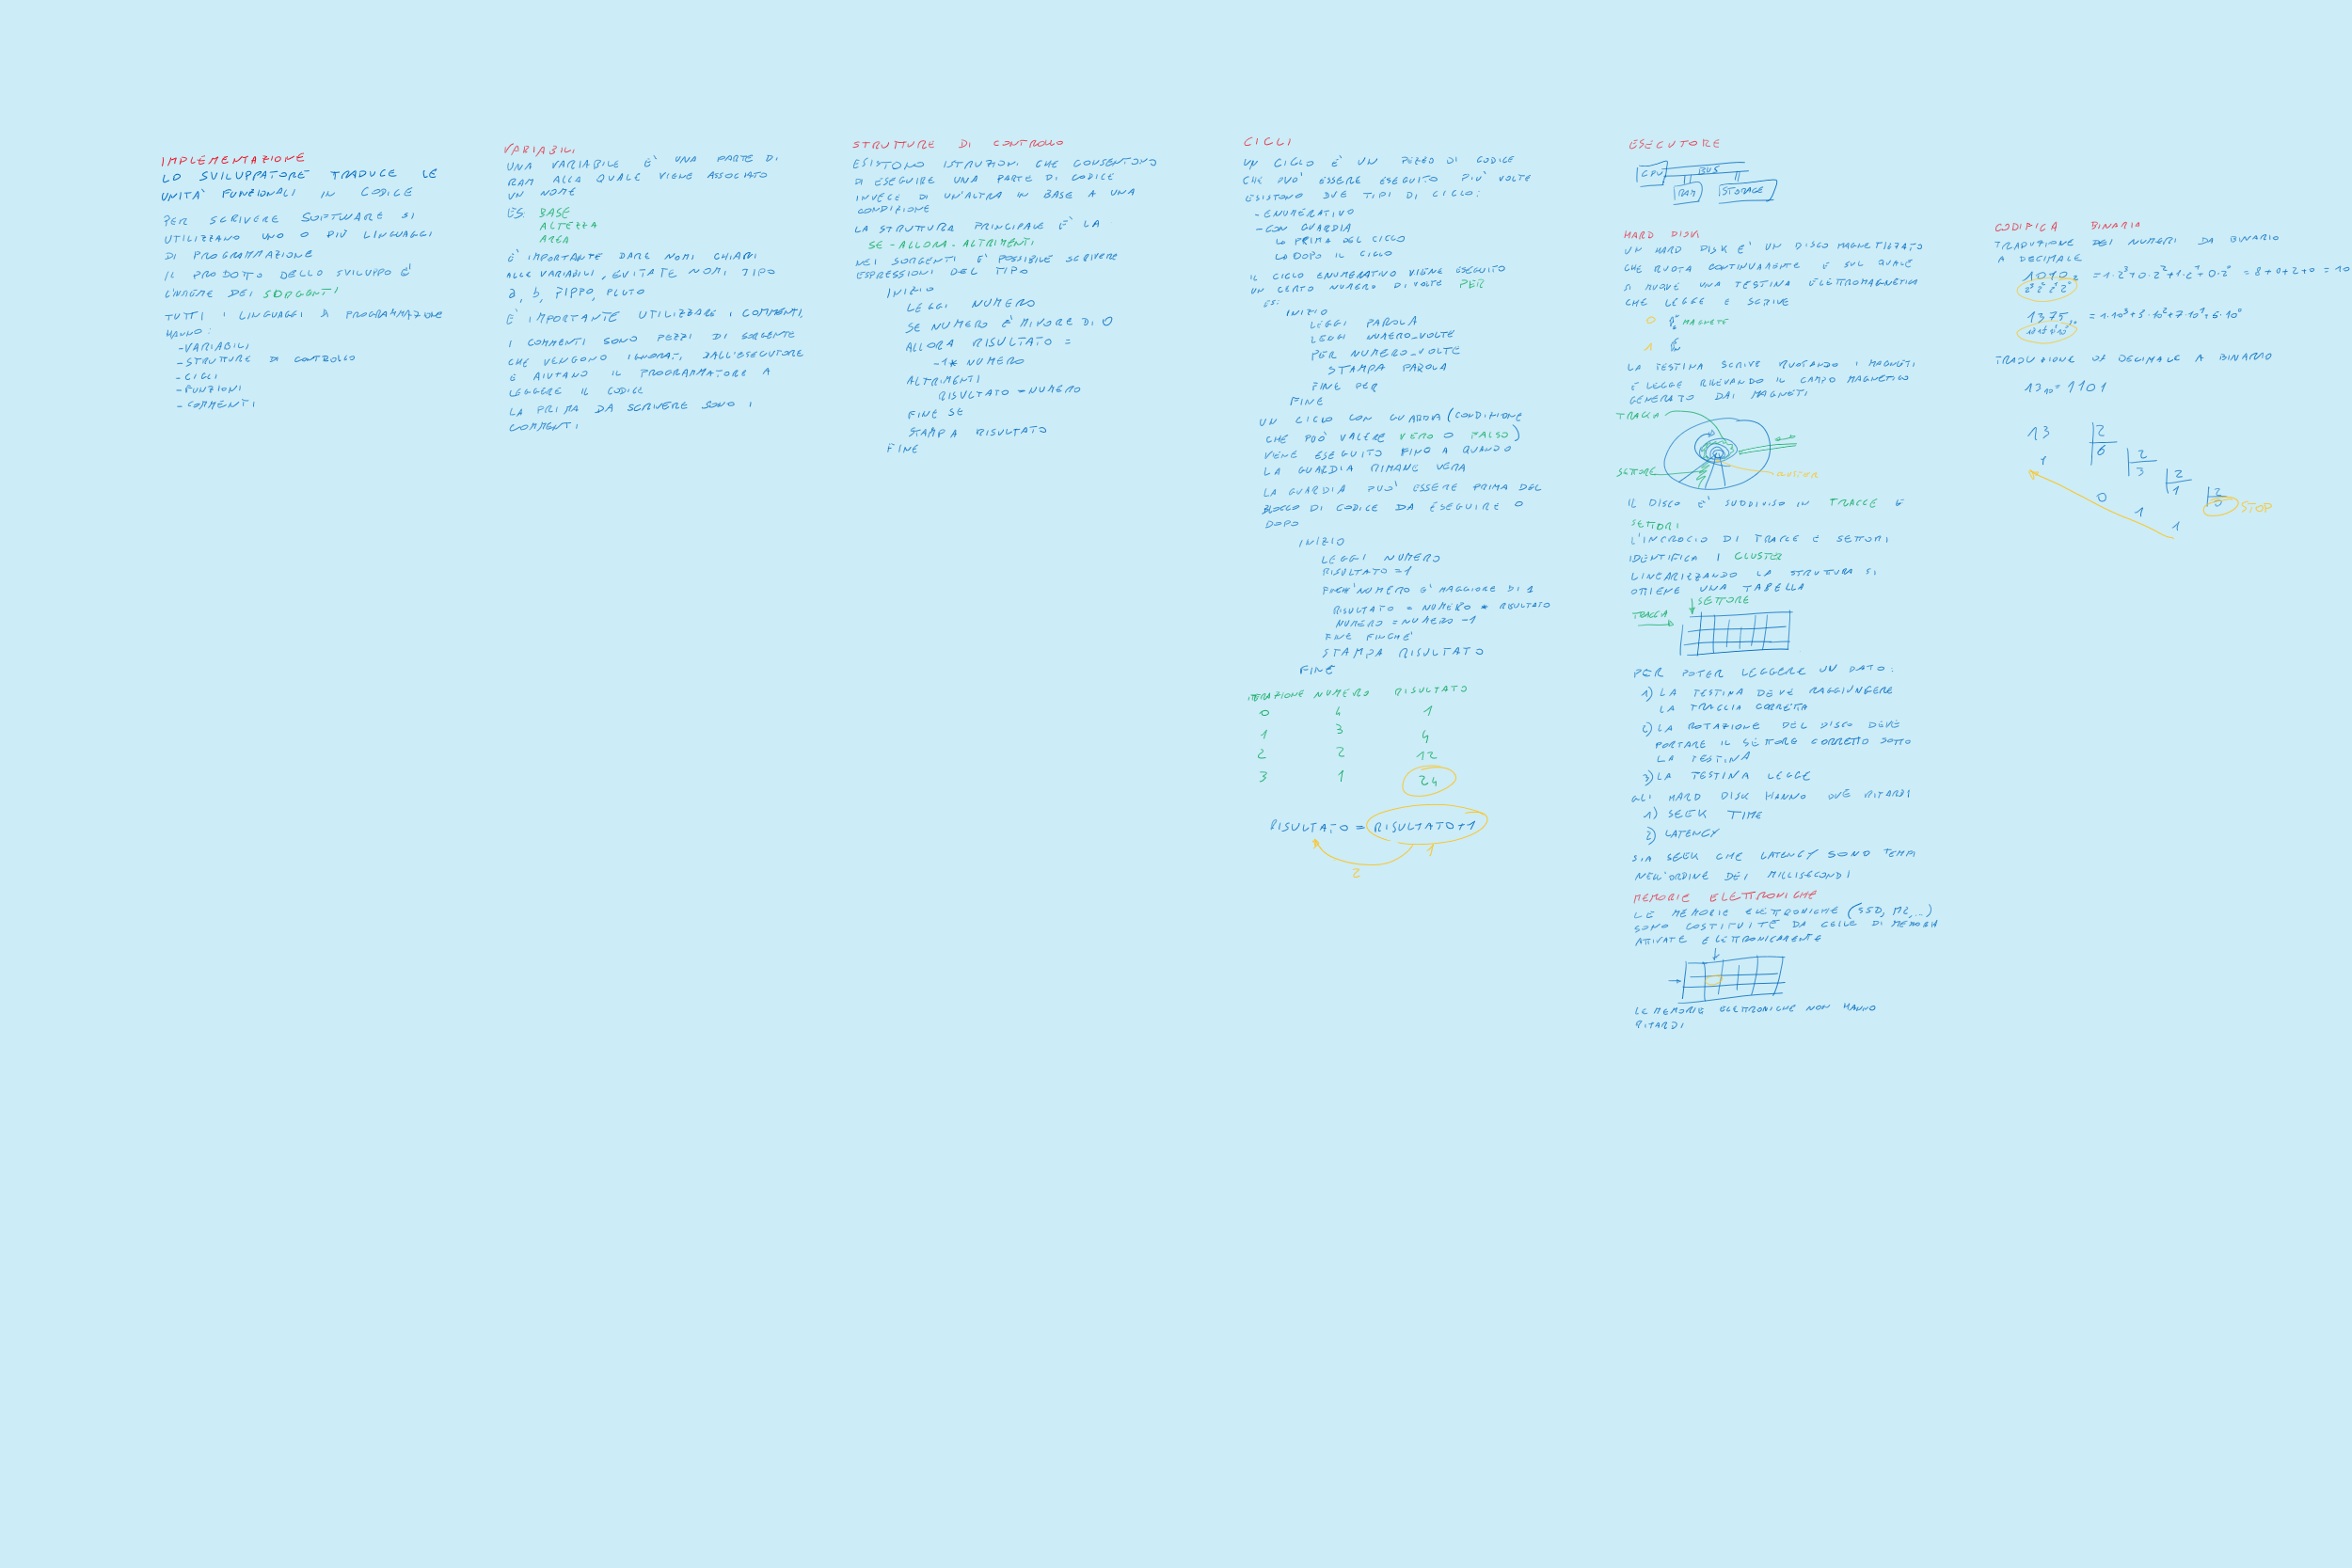 IMPLEMENTAZIONE
LO SVILUPPATORE TRADUCE LE
UNITA' FUNZIONALI IN CODICE
PER SCRIVERE SOFTWARE SI
UTILIZZANO UNO O PIÙ LINGUAGGI
DI PROGRAMMAZIONE
IL PRODOTTO DELLO SVILUPPO E'
L'INSIEME DEI SORGENTI
TUTTI I LINGUAGGI DI PROGRAMMAZIONE
HANNO:
-VARIABILI
-STRUTTURE DI CONTROLLO
-CICLI
-FUNZIONI
-COMMENTI
VARIABILI
UNA VARIABILE E' UNA PARTE DI
RAM ALLA QUALE VIENE ASSOCIATO
UN NOME
ES: BASE
ALTEZZA
AREA
E' IMPORTANTE DARE NOMI CHIARI
ALLE VARIABILI, EVITATE NOMI TIPO
a, b, PIPPO, PLUTO
E' IMPORTANTE UTILIZZARE I COMMENTI.
I COMMENTI SONO PEZZI DI SORGENTE
CHE VENGONO IGNORATI DALL'ESECUTORE
E AIUTANO IL PROGRAMMATORE A
LEGGERE IL CODICE
LA PRIMA DA SCRIVERE SONO I
COMMENTI
STRUTTURE DI CONTROLLO
ESISTONO ISTRUZIONI CHE CONSENTONO
DI ESEGUIRE UNA PARTE DI CODICE
INVECE DI UN'ALTRA IN BASE A UNA
CONDIZIONE
LA STRUTTURA PRINCIPALE È LA
SE - ALLORA - ALTRIMENTI
NEI SORGENTI E' POSSIBILE SCRIVERE
ESPRESSIONI DEL TIPO
INIZIO
LEGGI NUMERO
SE NUMERO E' MINORE DI 0
ALLORA RISULTATO =
-1* NUMERO
ALTRIMENTI
RISULTATO = NUMERO
FINE SE
STAMPA RISULTATO
FINE
CICLI
UN CICLO E' UN PEZZO DI CODICE
CHE PUO' ESSERE ESEGUITO PIU' VOLTE
ESISTONO DUE TIPI DI CICLO:
- ENUMERATIVO
- CON GUARDIA
↳ PRIMA DEL CICLO
↳ DOPO IL CICLO
IL CICLO ENUMERATIVO VIENE ESEGUITO
UN CERTO NUMERO DI VOLTE PER
ES:
INIZIO
LEGGI PAROLA
LEGGI NUMERO_VOLTE
PER NUMERO_VOLTE
STAMPA PAROLA
FINE PER
FINE
UN CICLO CON GUARDIA (CONDIZIONE
CHE PUÒ VALERE VERO O FALSO)
VIENE ESEGUITO FINO A QUANDO
LA GUARDIA RIMANE VERA
LA GUARDIA PUO' ESSERE PRIMA DEL
BLOCCO DI CODICE DA ESEGUIRE O
DOPO
INIZIO
LEGGI NUMERO
RISULTATO = 1
FINCHE' NUMERO E' MAGGIORE DI 1
RISULTATO = NUMERO * RISULTATO
NUMERO = NUMERO - 1
FINE FINCHE'
STAMPA RISULTATO
FINE
ITERAZIONE NUMERO RISULTATO
0 4 1
1 3 4
2 2 12
3 1 24
RISULTATO = RISULTATO + 1
1
2
ESECUTORE
CPU BUS
RAM STORAGE
HARD DISK
UN HARD DISK E' UN DISCO MAGNETIZZATO
CHE RUOTA CONTINUAMENTE E SUL QUALE
SI MUOVE UNA TESTINA ELETTROMAGNETICA
CHE LEGGE E SCRIVE
0 MAGNETE
1
LA TESTINA SCRIVE RUOTANDO I MAGNETI
E LEGGE RILEVANDO IL CAMPO MAGNETICO
GENERATO DAI MAGNETI
TRACCIA
SETTORE CLUSTER
IL DISCO E' SUDDIVISO IN TRACCE E
SETTORI
L'INCROCIO DI TRACCE E SETTORI
IDENTIFICA I CLUSTER
LINEARIZZANDO LA STRUTTURA SI
OTTIENE UNA TABELLA
SETTORE
TRACCIA
PER POTER LEGGERE UN DATO:
1) LA TESTINA DEVE RAGGIUNGERE
LA TRACCIA CORRETTA
2) LA ROTAZIONE DEL DISCO DEVE
PORTARE IL SETTORE CORRETTO SOTTO
LA TESTINA
3) LA TESTINA LEGGE
GLI HARD DISK HANNO DUE RITARDI
1) SEEK TIME
2) LATENCY
SIA SEEK CHE LATENCY SONO TEMPI
NELL'ORDINE DEI MILLISECONDI
MEMORIE ELETTRONICHE
LE MEMORIE ELETTRONICHE (SSD, M2, ...)
SONO COSTITUITE DA CELLE DI MEMORIA
ATTIVATE ELETTRONICAMENTE
LE MEMORIE ELETTRONICHE NON HANNO
RITARDI
CODIFICA BINARIA
TRADUZIONE DEI NUMERI DA BINARIO
A DECIMALE
1010₂ = 1·2³+0·2²+1·2¹+0·2⁰ = 8+0+2+0 = 10
2³2²2¹2⁰
1375₁₀ = 1·10³+3·10²+7·10¹+5·10⁰
10³10²10¹10⁰
TRADUZIONE DA DECIMALE A BINARIO
13₁₀ = 1101
13 2
1 6 2
3 2
0 1 2
0 STOP
1
1